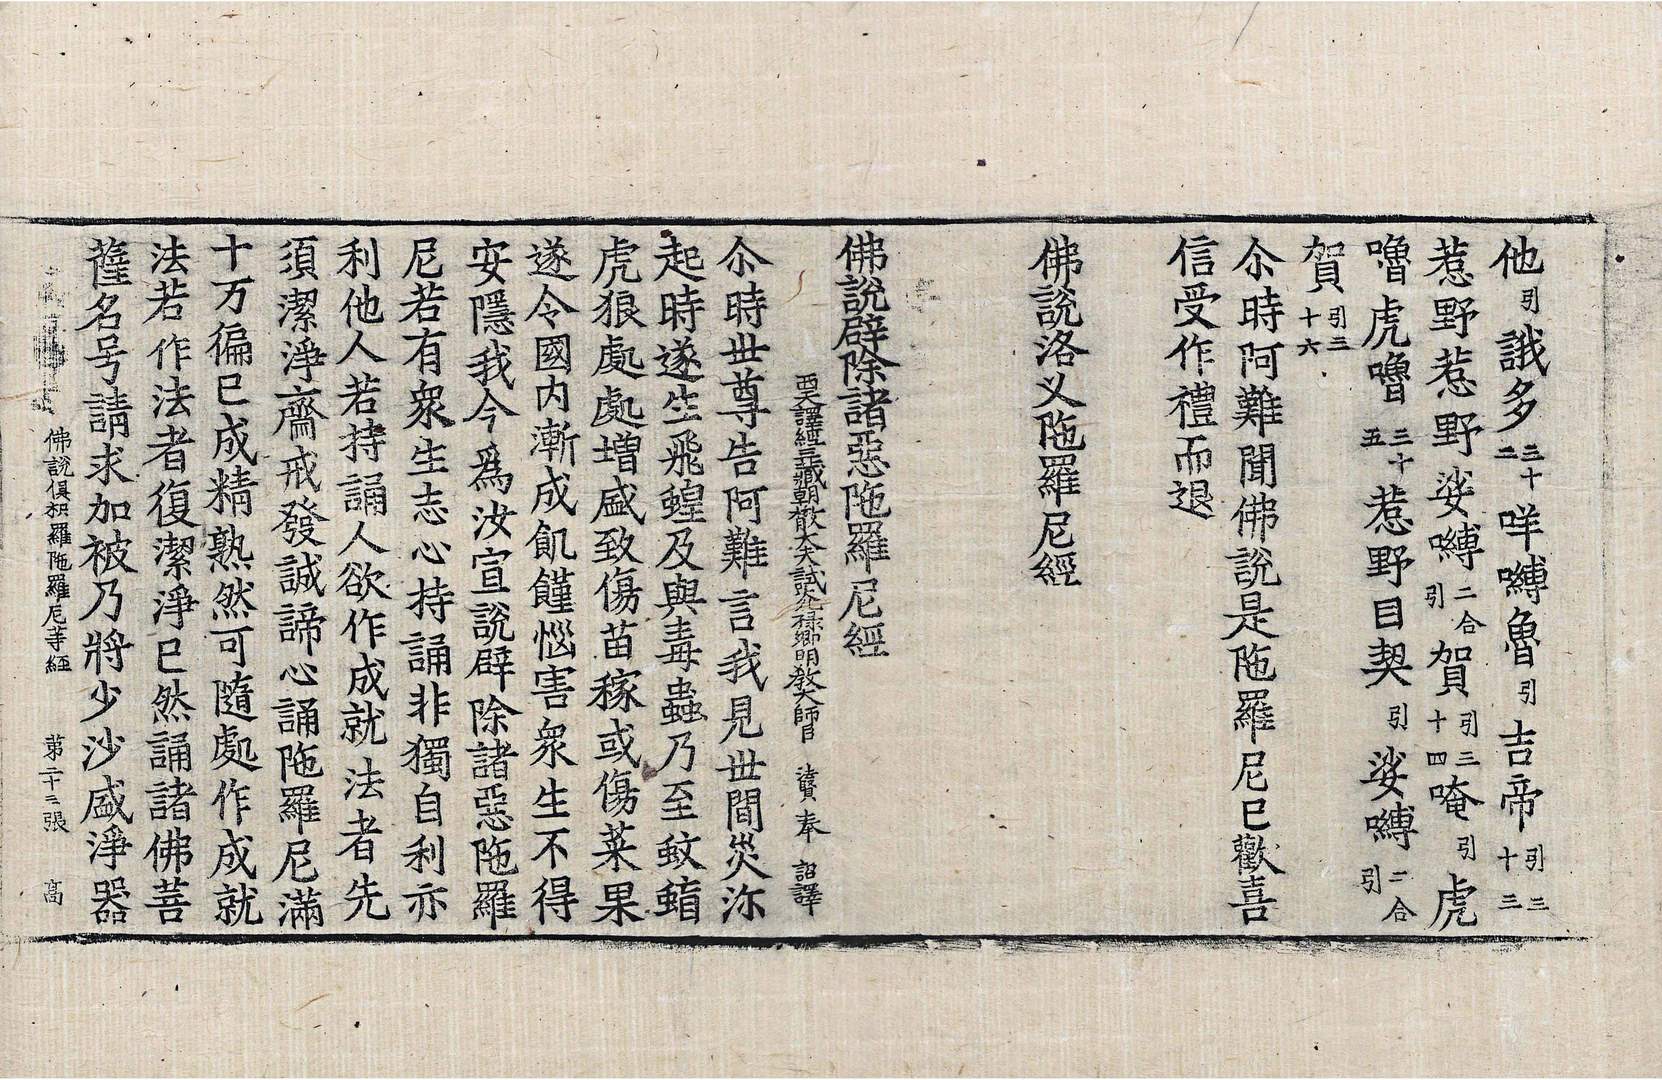 他引誐多三十二咩嚩魯引吉帝引三十三
惹野惹野娑嚩二合引賀引三十四唵引虎
嚕虎嚕三十五惹野目契引娑嚩二合引
賀引三十六
尒時阿難聞佛說是陁羅尼已歡喜
信受作禮而退
佛說洛叉陁羅尼經
佛說辟除諸惡陁羅尼經
西天譯經三藏朝散大夫試光祿卿明教大師臣 法賢 奉 詔譯
尒時世尊告阿難言我見世間災沴
起時遂生飛蝗及與毒蟲乃至蚊蝱
虎狼處處增盛致傷苗稼或傷菓果
遂令國內漸成飢饉惱害衆生不得
安隱我今爲汝宣說辟除諸惡陁羅
尼若有衆生志心持誦非獨自利亦
利他人若持誦人欲作成就法者先
須潔淨齋戒發誠諦心誦陁羅尼滿
十万徧已成精熟然可隨處作成就
法若作法者復潔淨已然誦諸佛菩
薩名号請求加被乃將少沙盛淨器
佛說俱枳羅陁羅尼等經 第二十三張 髙